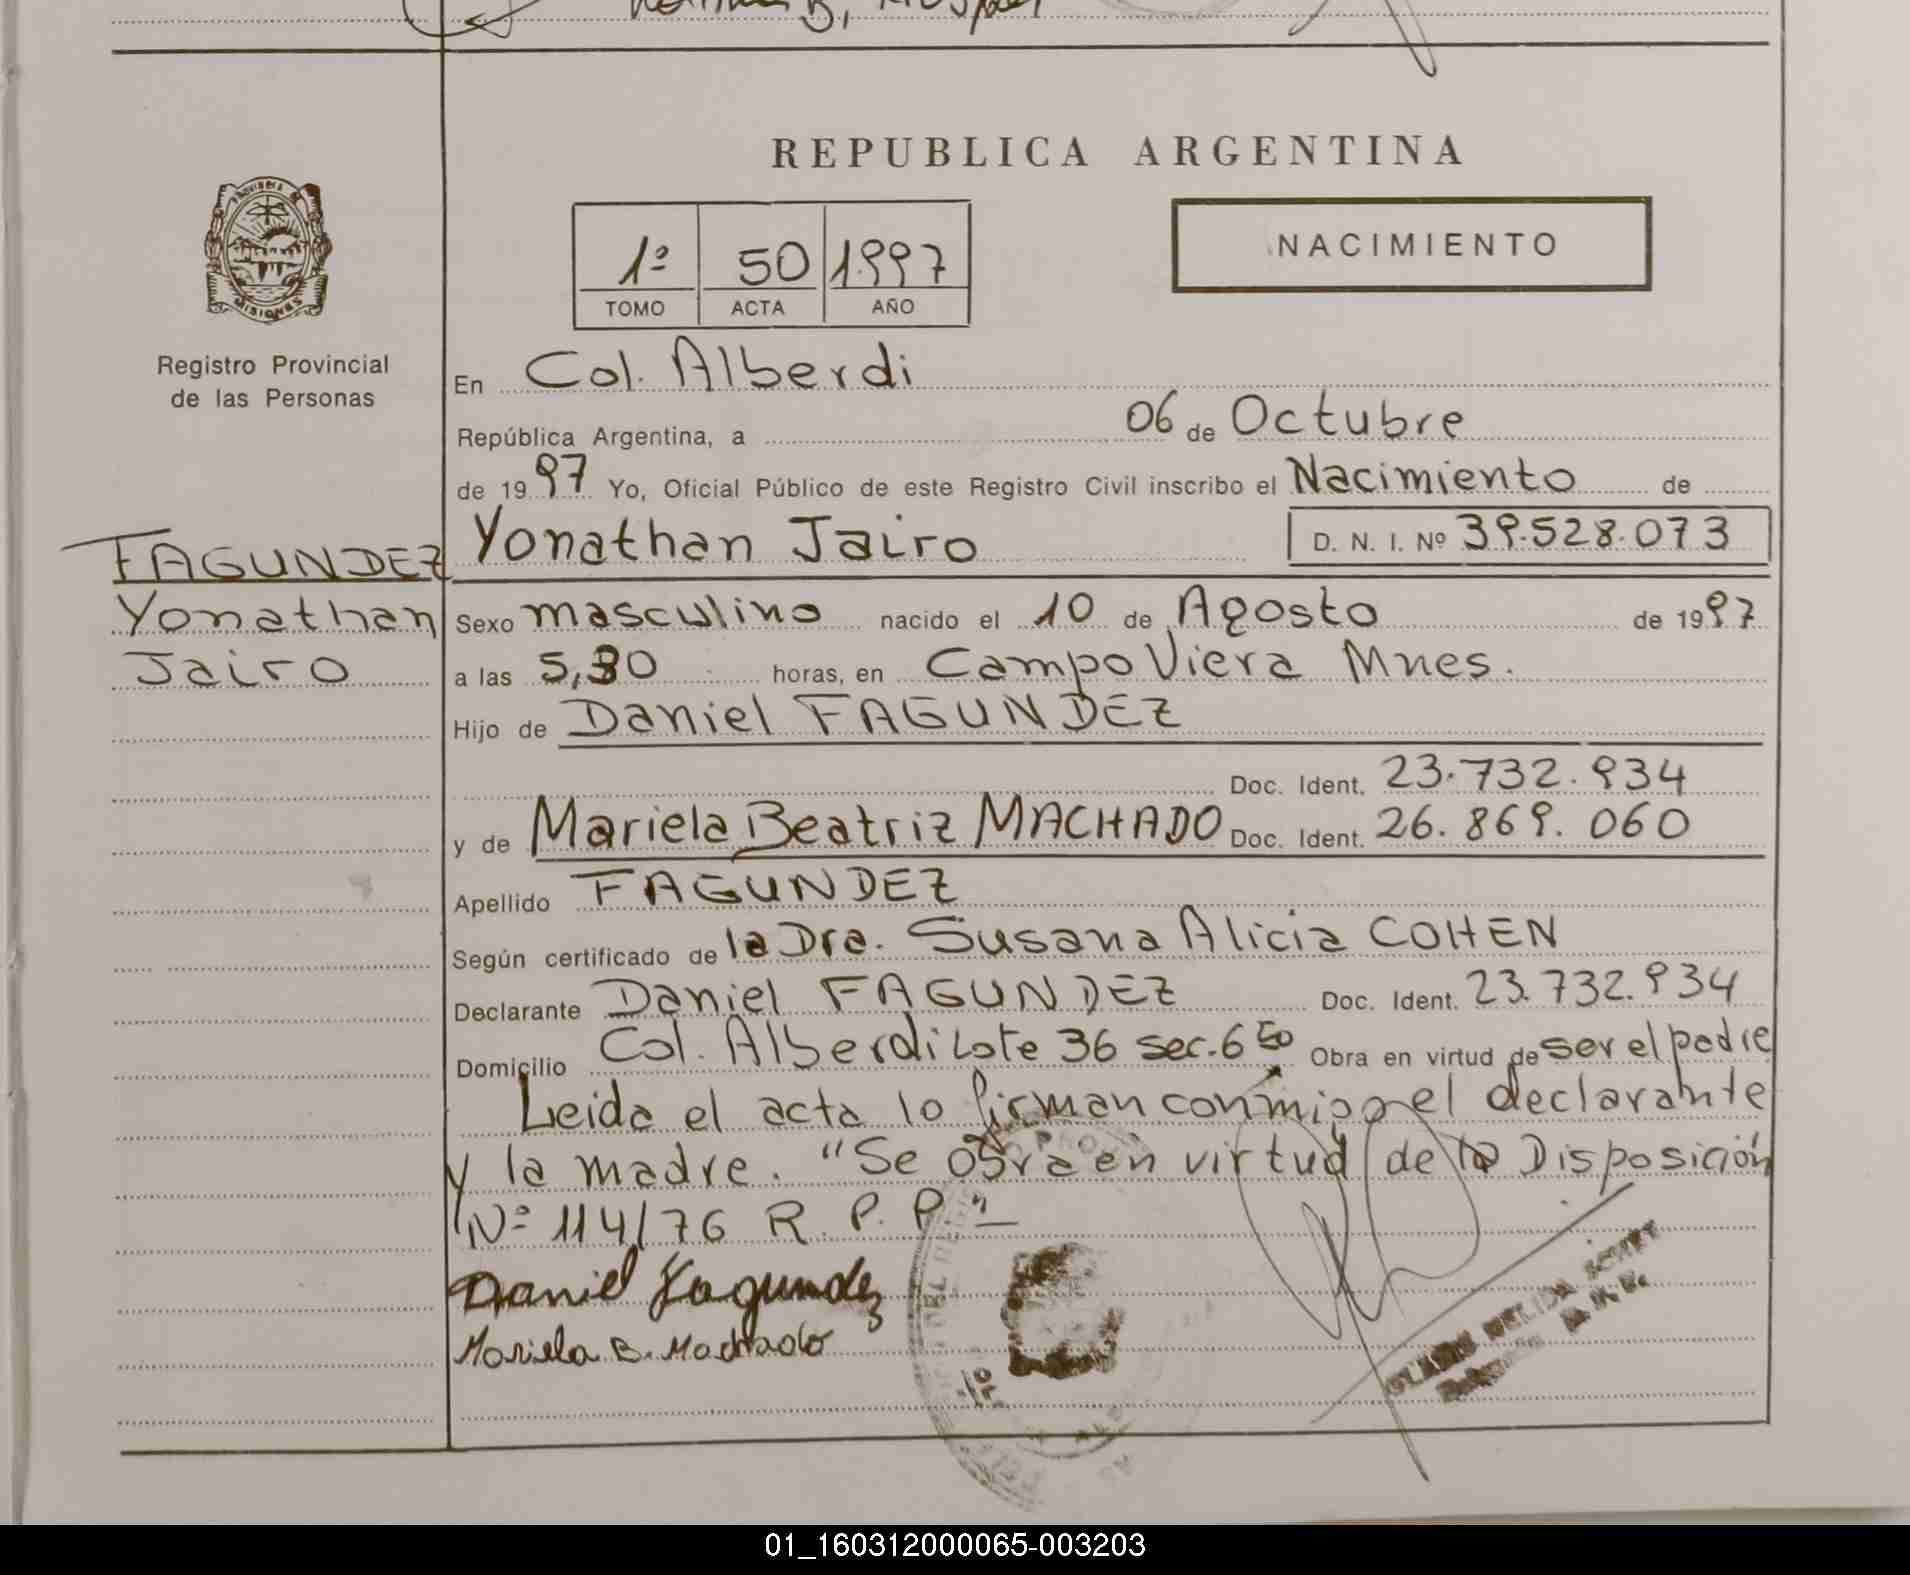 REPUBLICA ARGENTINA
NACIMIENTO
1º 50 1997
TOMO ACTA AÑO
PROVINCIA DE
MISIONES
Registro Provincial
de las Personas
En Col. Alberdi
República Argentina, a 06 de Octubre
de 1997 Yo, Oficial Público de este Registro Civil inscribo el Nacimiento de
FAGUNDEZ
Yonathan
Jairo
Yonathan Jairo D. N. I. Nº 39.528.073
Sexo masculino nacido el 10 de Agosto de 1997
a las 5,30 horas, en Campo Viera Mnes.
Hijo de Daniel FAGUNDEZ
Doc. Ident. 23.732.934
y de Mariela Beatriz MACHADO Doc. Ident. 26.869.060
Apellido FAGUNDEZ
Según certificado de la Dra. Susana Alicia COHEN
Declarante Daniel FAGUNDEZ Doc. Ident. 23.732.934
Domicilio Col. Alberdi Lote 36 sec. 6 Obra en virtud de ser el padre
Leida el acta lo firman conmigo el declarante
y la madre. "Se obra en virtud de la Disposición
Nº 114/76 R. P. P."
Daniel Fagundez
Mariela B. Machado
01_160312000065-003203